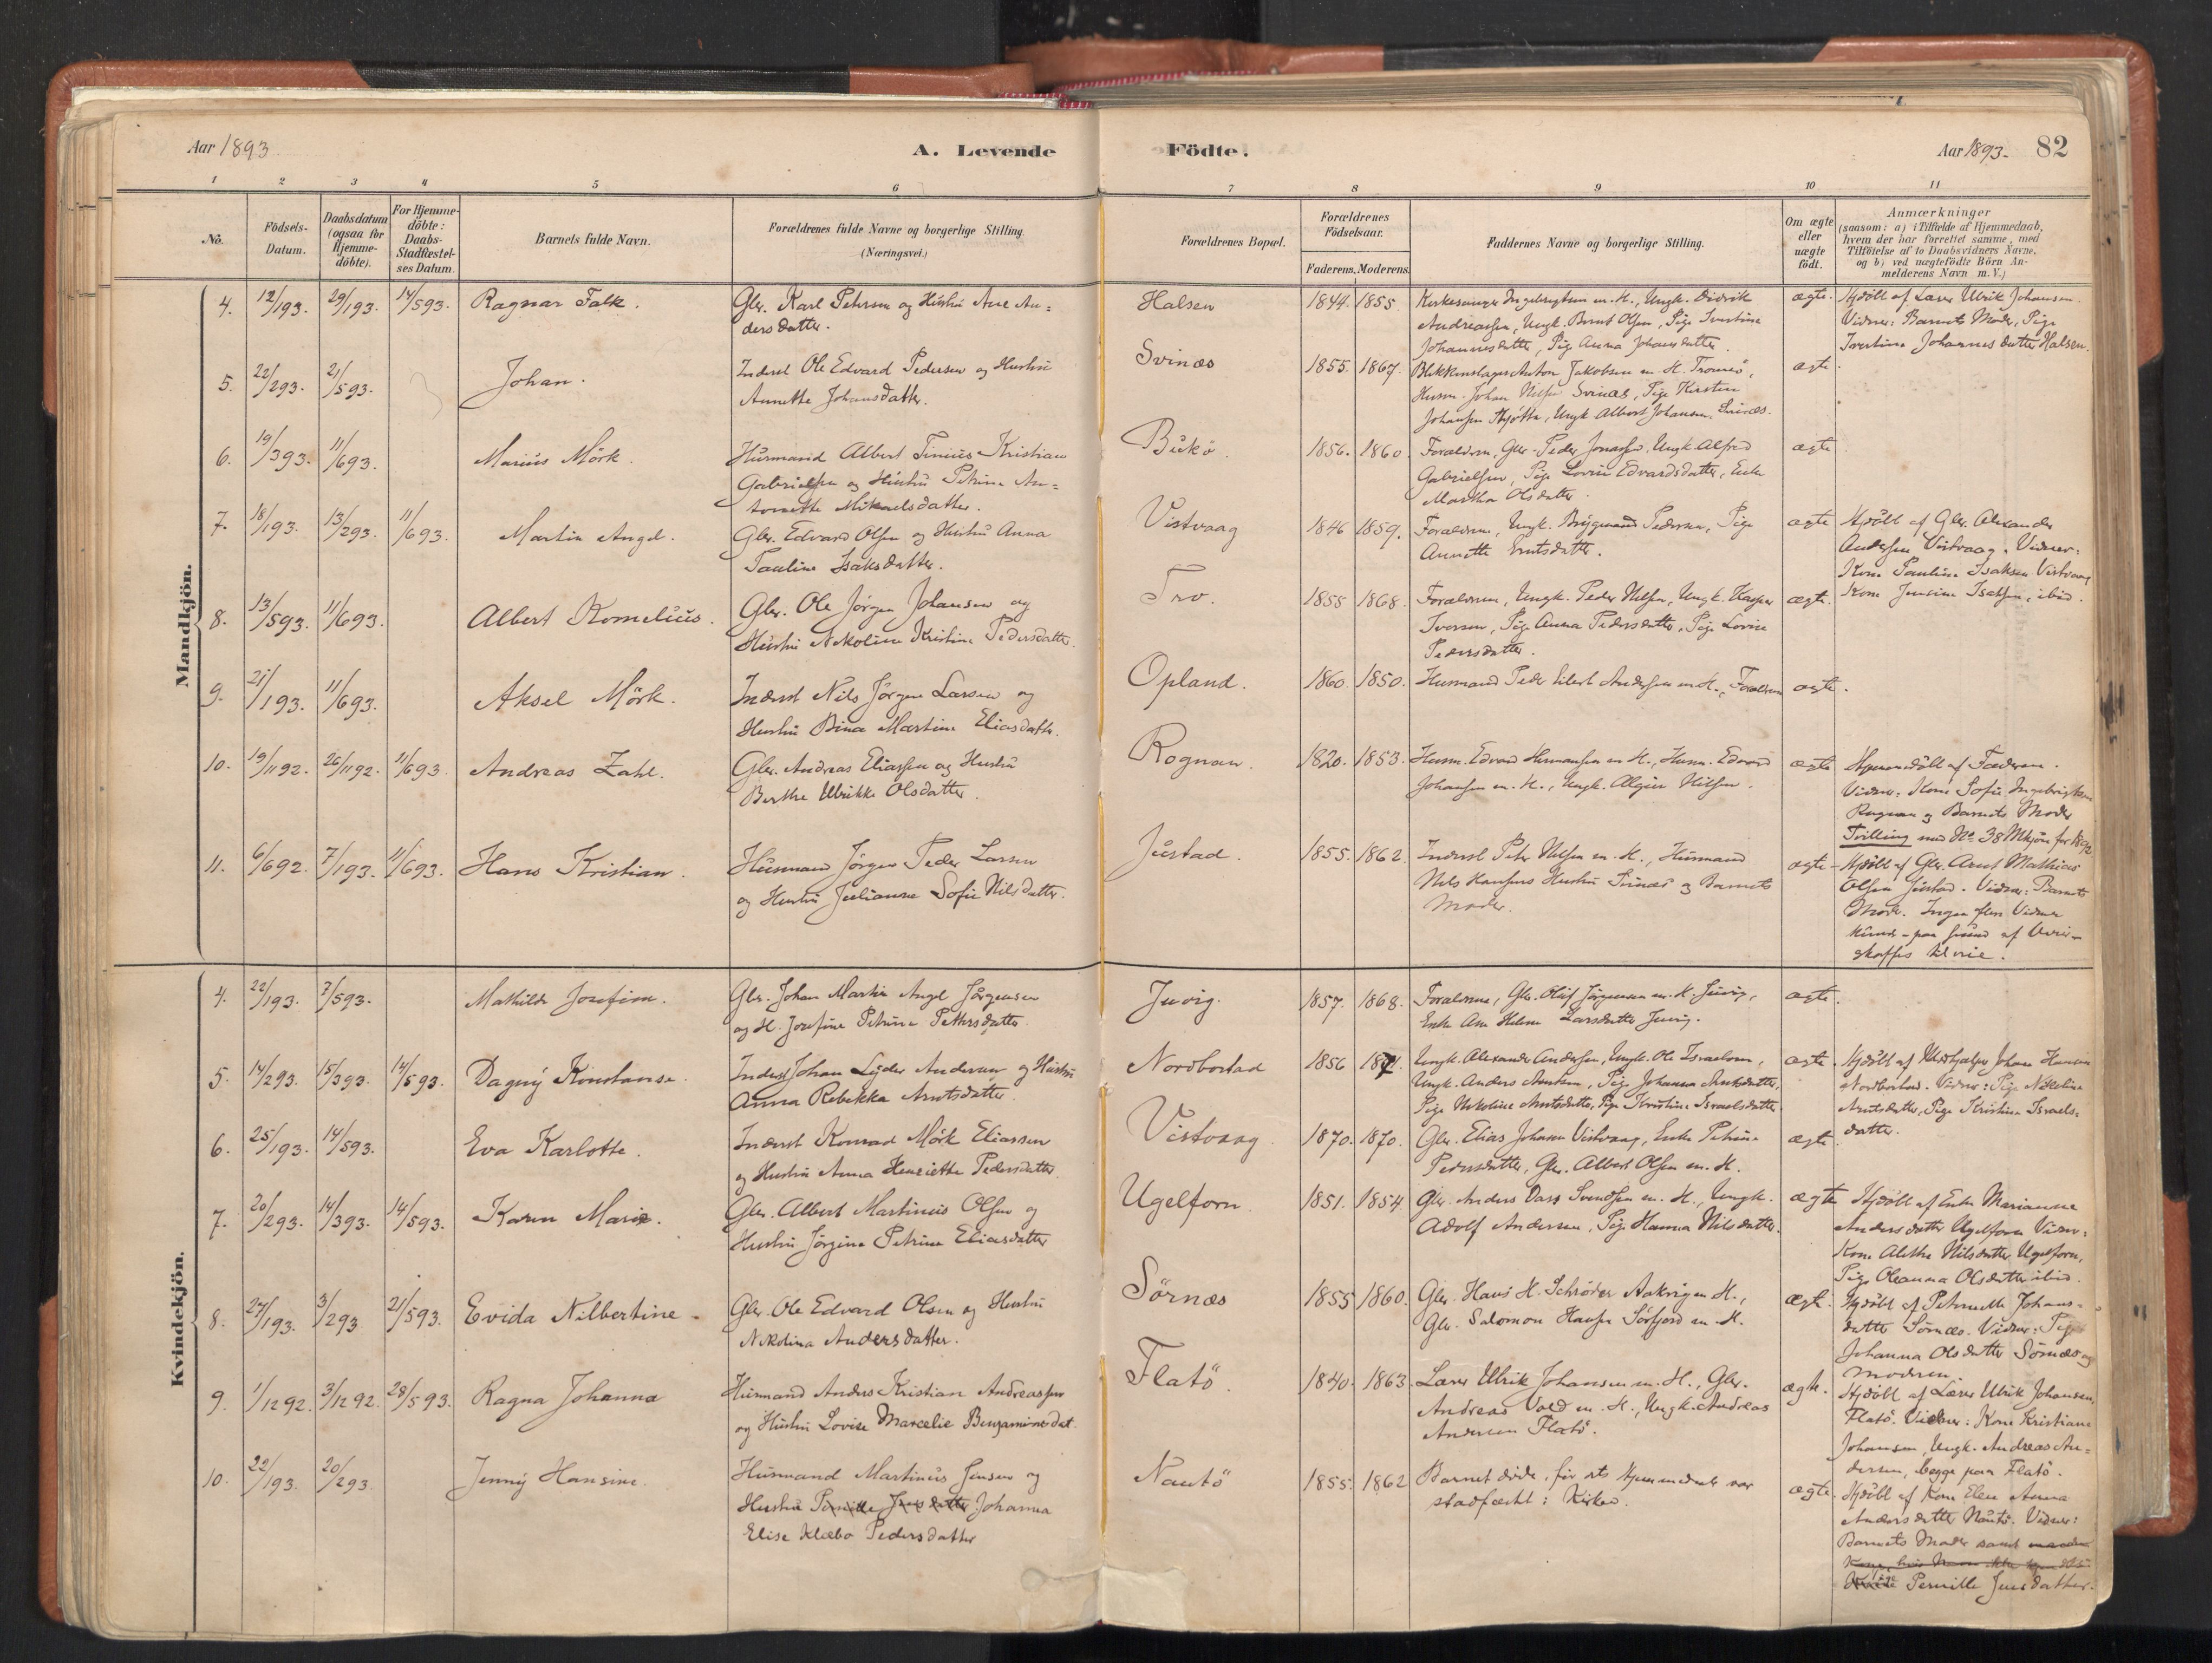 Aar 1893
A. Levende
Födte.
Aar 1893. 82
1 2 3 4 5 6 7 8 9 10 11
No.
Födsels-
Datum.
Daabsdatum
(ogsaa for
Hjemme-
döbte).
For Hjemme-
döbte:
Daabs-
Stadfæstel-
ses Datum.
Barnets fulde Navn.
Forældrenes fulde Navne og borgerlige Stilling
(Næringsvei.)
Forældrenes Bopæl.
Forældrenes
Födselsaar.
Faderens. Moderens.
Faddernes Navne og borgerlige Stilling.
Om ægte
eller
uægte
födt.
Anmærkninger
(saasom: a) i Tilfælde af Hjemmedaab,
hvem der har forrettet samme, med
Tilföielse af to Daabsvidners Navne,
og b) ved uægtefödte Börn An-
melderens Navn m. V.)
Mandkjön.
4. 12/193. 29/193. 14/593. Ragnar Falk.
Gbr. Karl Petersen og Hustru Ane An-
dersdatter.
Halsen 1844. 1855
Kirkesanger Ingebrigtsen m. H., Ungk. Didrik
Andreassen, Ungk. Bernt Olsen, Pige Ivertine
Johannesdatter, Pige Anna Johansdatter.
ægte.
Hjdöbt af Lærer Ulrik Johansen.
Vidner: Barnets Moder, Pige
Ivertine Johannesdatter Halsen.
5. 22/293. 21/593. Johan.
Inderst Ole Edvard Pedersen og Hustru
Annette Johansdatter.
Svinæs 1855. 1867.
Blikkenslager Anton Jakobsen m. H. Tromsö,
Husm. Johan Nilsen Svinæs, Pige Kirsten
Johansen Thjötta, Ungk. Albert Johansen, Svinæs.
ægte.
6. 19/393. 11/693. Marius Mörk.
Husmand Albert Tinius Kristian
Gabrielsen og Hustru Petrine An-
tonette Mikaelsdatter.
Bukö 1856. 1860.
Forældrene, Gbr. Peder Jonassen, Ungk. Alfred
Gabrielsen, Pige Lovise Edvardsdatter, Enke
Martha Olsdatter.
ægte
7. 18/193. 13/293. 11/693. Martin Angel.
Gbr. Edvard Olsen og Hustru Anna
Pauline Isaksdatter.
Vistvaag 1846 1859.
Forældrene, Ungk. Brygmand Pedersen, Pige
Annette Erntsdatter.
ægte
Hjdöbt af Gbr. Alexander
Andersen Vistvaag. Vidner:
Kone Pauline Isaksen Vistvaag
Kone Jensine Isaksen, ibid.
8. 13/593. 11/693. Albert Kornelius.
Gbr. Ole Jörgen Johansen og
Hustru Nikoline Kristine Pedersdatter.
Tro. 1855 1868.
Forældrene, Ungk. Peder Nilsen, Ungk. Kasper
Iversen, Pige Anna Pedersdatter, Pige Lovise
Pedersdatter.
ægte.
9. 21/193. 11/693. Aksel Mörk.
Inderst Nils Jörgen Larsen og
Hustru Bina Martine Eliasdatter.
Opland. 1860. 1850.
Husmand Peder Eilert Andersen m. H., Forældrene
ægte.
10. 19/1192. 26/1192. 11/693. Andreas Zahl.
Gbr. Andreas Eliassen og Hustru
Berthe Ulrikke Olsdatter.
Rognan. 1820. 1853.
Husm. Edvard Hermansen m. H., Husm. Edvard
Johansen m. H., Ungk. Algier Nilsen.
ægte
Hjemmedöbt af Faderen.
Vidner: Kone Sofie Ingebrigtsen
Rognan og Barnets Moder
Tvilling med No. 38 Mkjön for 1892
11. 6/692. 7/193. 11/693. Hans Kristian.
Husmand Jörgen Peder Larsen
og Hustru Julianne Sofie Nilsdatter.
Justad. 1855. 1862.
Inderst Peter Nilsen m. H., Husmand
Nils Hansens Hustru Svinæs og Barnets
Moder.
ægte
Hjdöbt af Gbr. Arnt Mathias
Olsen Justad. Vidner: Barnets
Moder. Ingen flere Vidner
kunde paa Grund af Uveir
skaffes tilveie.
Kvindekjön.
4. 22/193. 7/593. Mathilde Josefine.
Gbr. Johan Martin Angel Jörgensen
og H. Josefine Petrine Pettersdatter
Juvig. 1857. 1868.
Forældrene, Gbr. Oluf Jörgensen m. H. Juvig,
Enke Ane Helene Larsdatter Juvig.
ægte.
5. 14/293. 15/393. 14/593. Dagny Konstanse.
Inderst Johan Lyder Andersen og Hustru
Anna Rebekka Arntsdatter.
Nordbostad 1856 1871.
Ungk. Alexander Andersen, Ungk. Ole Israelsen,
Ungk. Anders Arntsen, Pige Johanna Arntsdatter,
Pige Nikoline Arntsdatter, Pige Kristine Israelsdatter
ægte.
Hjdöbt af Medhjælper Johan Hansen
Nordbostad. Vidner: Pige Nikoline
Arntsdatter, Pige Kristine Israels-
datter.
6. 25/193. 14/593. Eva Karlotte.
Inderst Konrad Mörk Eliassen
og Hustru Anna Henriette Pedersdatter
Vistvaag 1870. 1870.
Gbr. Elias Johansen Vistvaag, Enke Petrine
Pedersdatter, Gbr. Albert Olsen m. H.
ægte.
7. 20/293. 14/393. 14/593. Karen Marie.
Gbr. Albert Martinus Olsen og
Hustru Jörgine Petrine Eliasdatter
Ugelforn. 1851. 1854.
Gbr. Anders Dass Svendsen m. H., Ungk.
Adolf Andersen, Pige Hanna Nilsdatter.
ægte
Hjdöbt af Enke Marianne
Andersdatter Ugelforn. Vidner:
Kone Alethe Nilsdatter Ugelforn,
Pige Oleanna Olsdatter ibid.
8. 27/193. 3/293 21/593. Evida Nilbertine.
Gbr. Ole Edvard Olsen og Hustru
Nikolina Andersdatter.
Sörnæs 1855 1860.
Gbr. Hans H. Schröder Aakvigen H.,
Gbr. Salomon Hansen Sörfjord m. H.
ægte.
Hjdöbt af Petrnelle Johans-
datter Sörnæs. Vidner: Pige
Johanna Olsdatter Sörnæs og
Moderen.
9. 1/1292. 3/1292. 28/593. Ragna Johanna
Husmand Anders Kristian Andreassen
og Hustru Lovise Marcelie Benjaminsdat.
Flatö. 1840. 1863.
Lærer Ulrik Johansen m. H., Gbr.
Andreas Vold m. H., Ungk. Andreas
Andersen Flatö.
ægte.
Hjdöbt af Lærer Ulrik Johansen,
Flatö. Vidner: Kone Kristiane
Johansen, Ungk. Andreas An-
dersen, begge paa Flatö.
10. 22/193. 20/293. Jenny Hansine.
Husmand Martinus Jensen og
Hustru Pernille Jensdatter Johanna
Elise Klæbo Pedersdatter
Nautö 1855. 1862
Barnet döde, för dets Hjemmedaab var
stadfæstet i Kirken.
ægte.
Hjdöbt af Kone Elen Anna
Andersdatter Nautö. Vidner:
Barnets Moder samt
Pige Pernille Jensdatter.